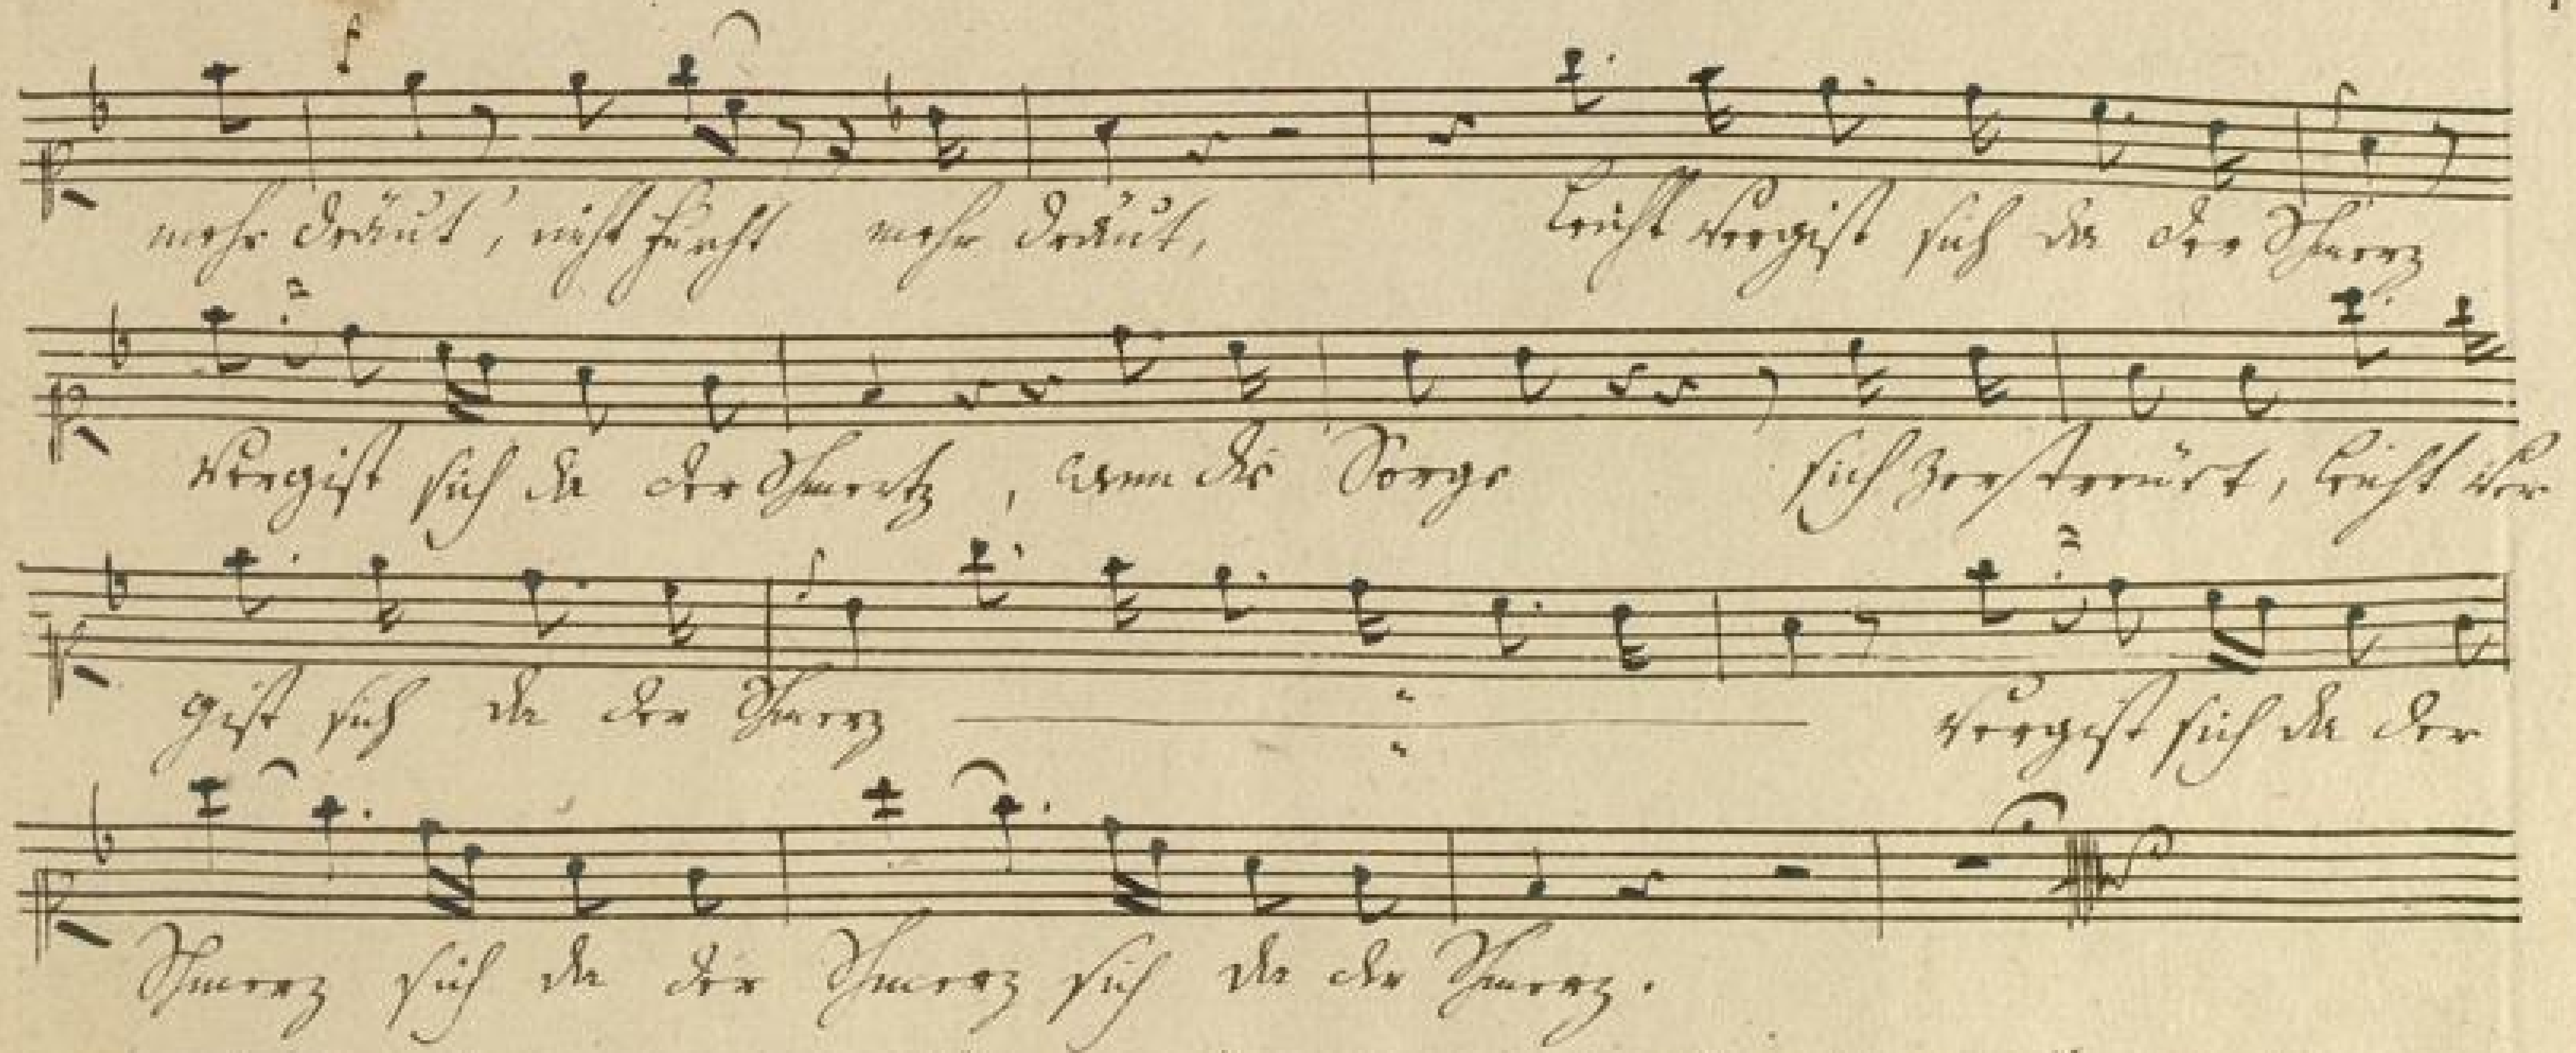 mehr dräut, nicht Furcht mehr dräut, Leicht vergist sich da der Schmerz
Vergist sich da der Schmertz, wenn die Sorge sich zerstreüet, leicht ver
gist sich da der Schmerz vergist sich da der
Schmerz sich da der Schmerz sich da der Schmerz.